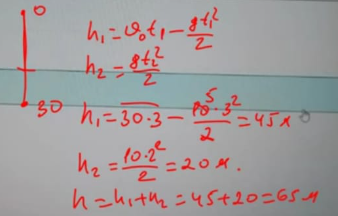 0
h₁ = υ₀t₁ − gt₁²/2
h₂ = gt₂²/2
30
h₁ = 30·3 − 10·3²/2 = 45 м
5
h₂ = 10·2²/2 = 20 м.
h = h₁ + h₂ = 45 + 20 = 65 м